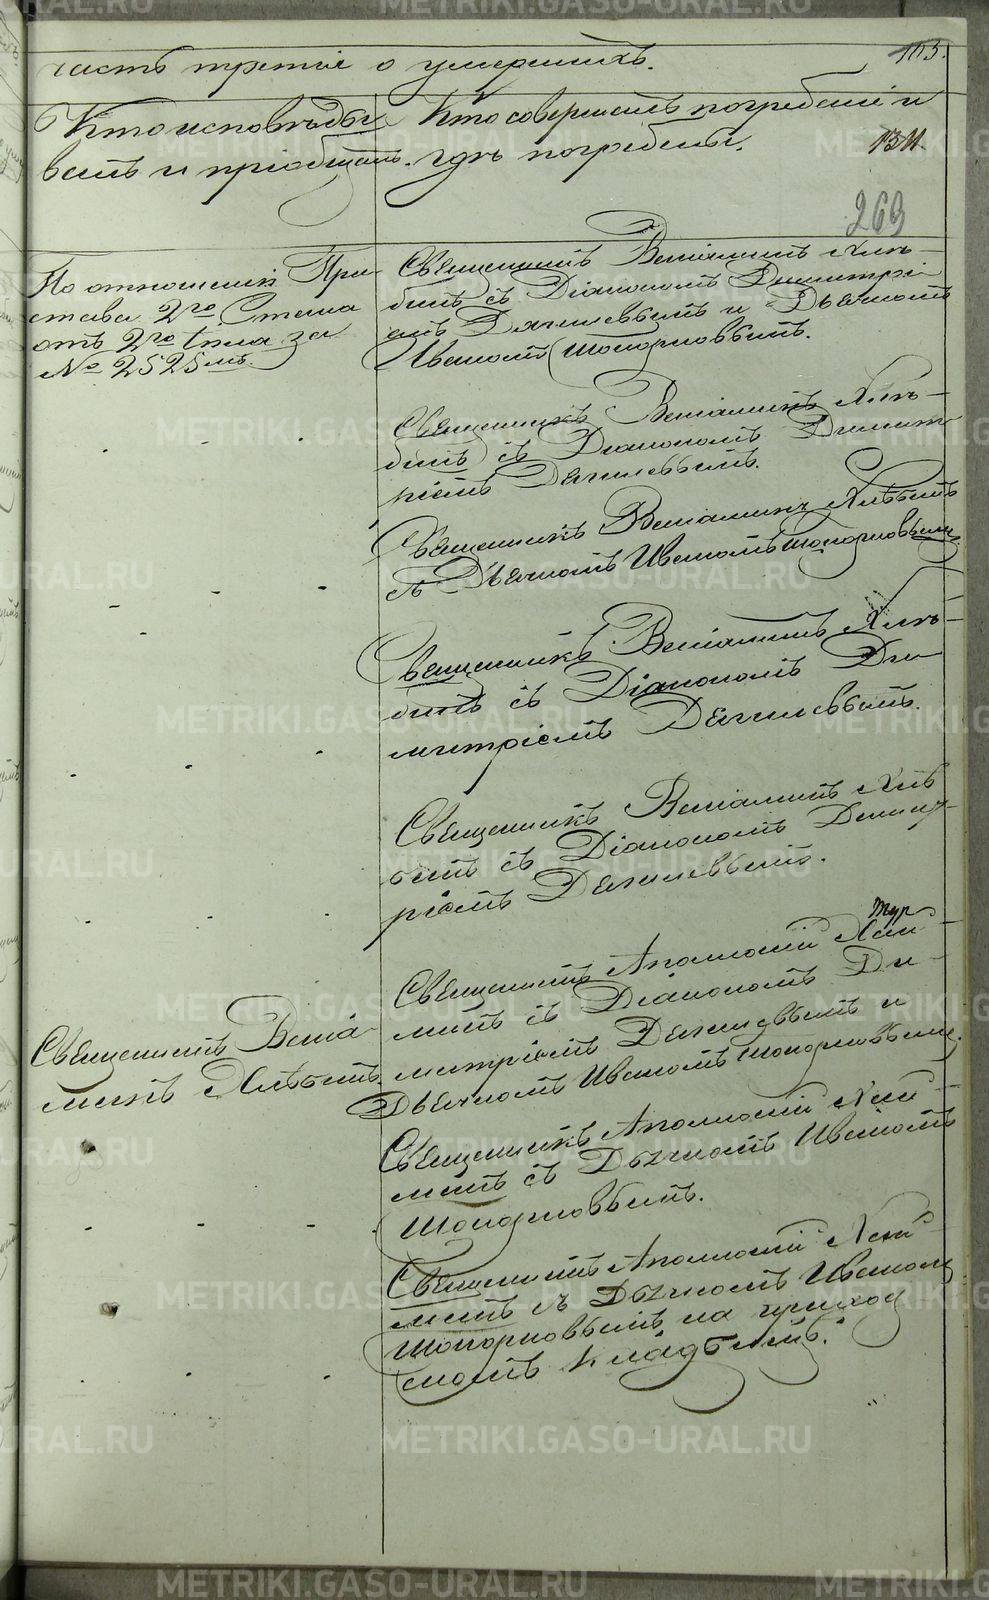 часть третія о умершихъ.
103.
Кто исповѣды
валъ и пріобщалъ.
Кто совершалъ погребеніе и
гдѣ погребены.
131
269
По отношенію При
става 2го Стана
отъ 2го Іюля за
№ 2525мъ.
Священникъ Веніаминъ Хлѣ-
бинъ съ Діакономъ Димитрі
емъ Дягилевымъ и Дьячкомъ
Иваномъ Топорковымъ.
Священникъ Веніаминъ Хлѣ-
бинъ съ Діакономъ Димит
ріемъ Дягилевымъ.
Священникъ Веніаминъ Хлѣбинъ
съ Дьячкомъ Иваномъ Топорковымъ.
Священникъ Веніаминъ Хлѣ-
бинъ съ Діакономъ Ди
митріемъ Дягилевымъ.
Священникъ Веніаминъ Хлѣ
бинъ съ Діакономъ Димит-
ріемъ Дягилевымъ.
Священникъ Веніа
минъ Хлѣбинъ.
Священникъ Аполлоній
съ Діакономъ Ди-
митріемъ Дягилевымъ и
Дьячкомъ Иваномъ Топорковымъ.
Священникъ Аполлоній
съ Дьячкомъ Иваномъ
Топорковымъ.
Священникъ Аполлоній
съ Дьячкомъ Иваномъ
Топорковымъ на приход
скомъ кладбищѣ.
METRIKI.GASO-URAL.RU